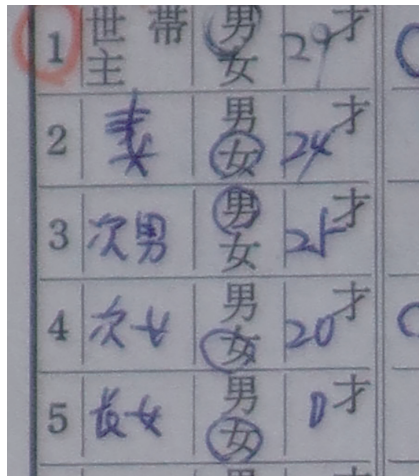 1 世帯主 男 女 29才
2 妻 男 女 24才
3 次男 男 女 21才
4 次女 男 女 20才
5 長女 男 女 0才